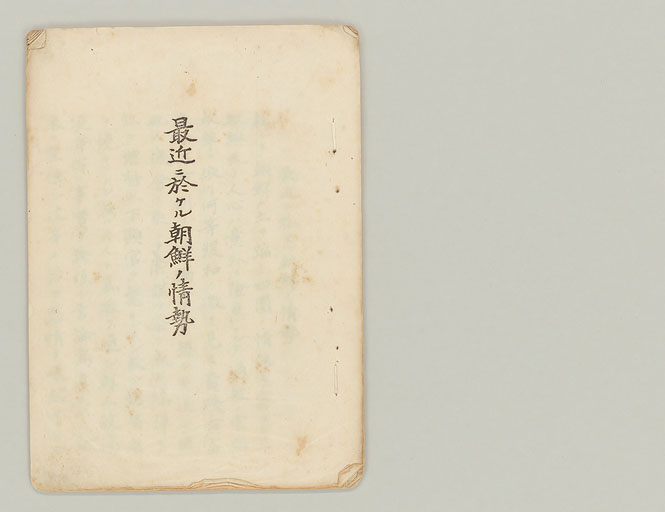 最近ニ於ケル朝鮮ノ情勢